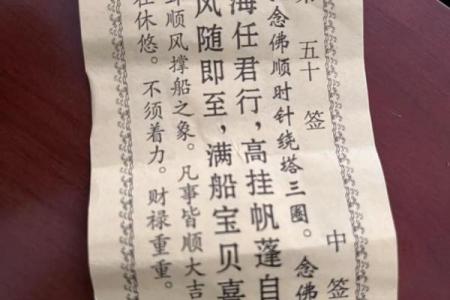 五十签 中签
念佛顺时针绕塔三圈。念佛
海任君行，高挂帆蓬自
风随即至，满船宝贝喜
顺风撑船之象。凡事皆顺大吉
休悠。不须着力。财禄重重。